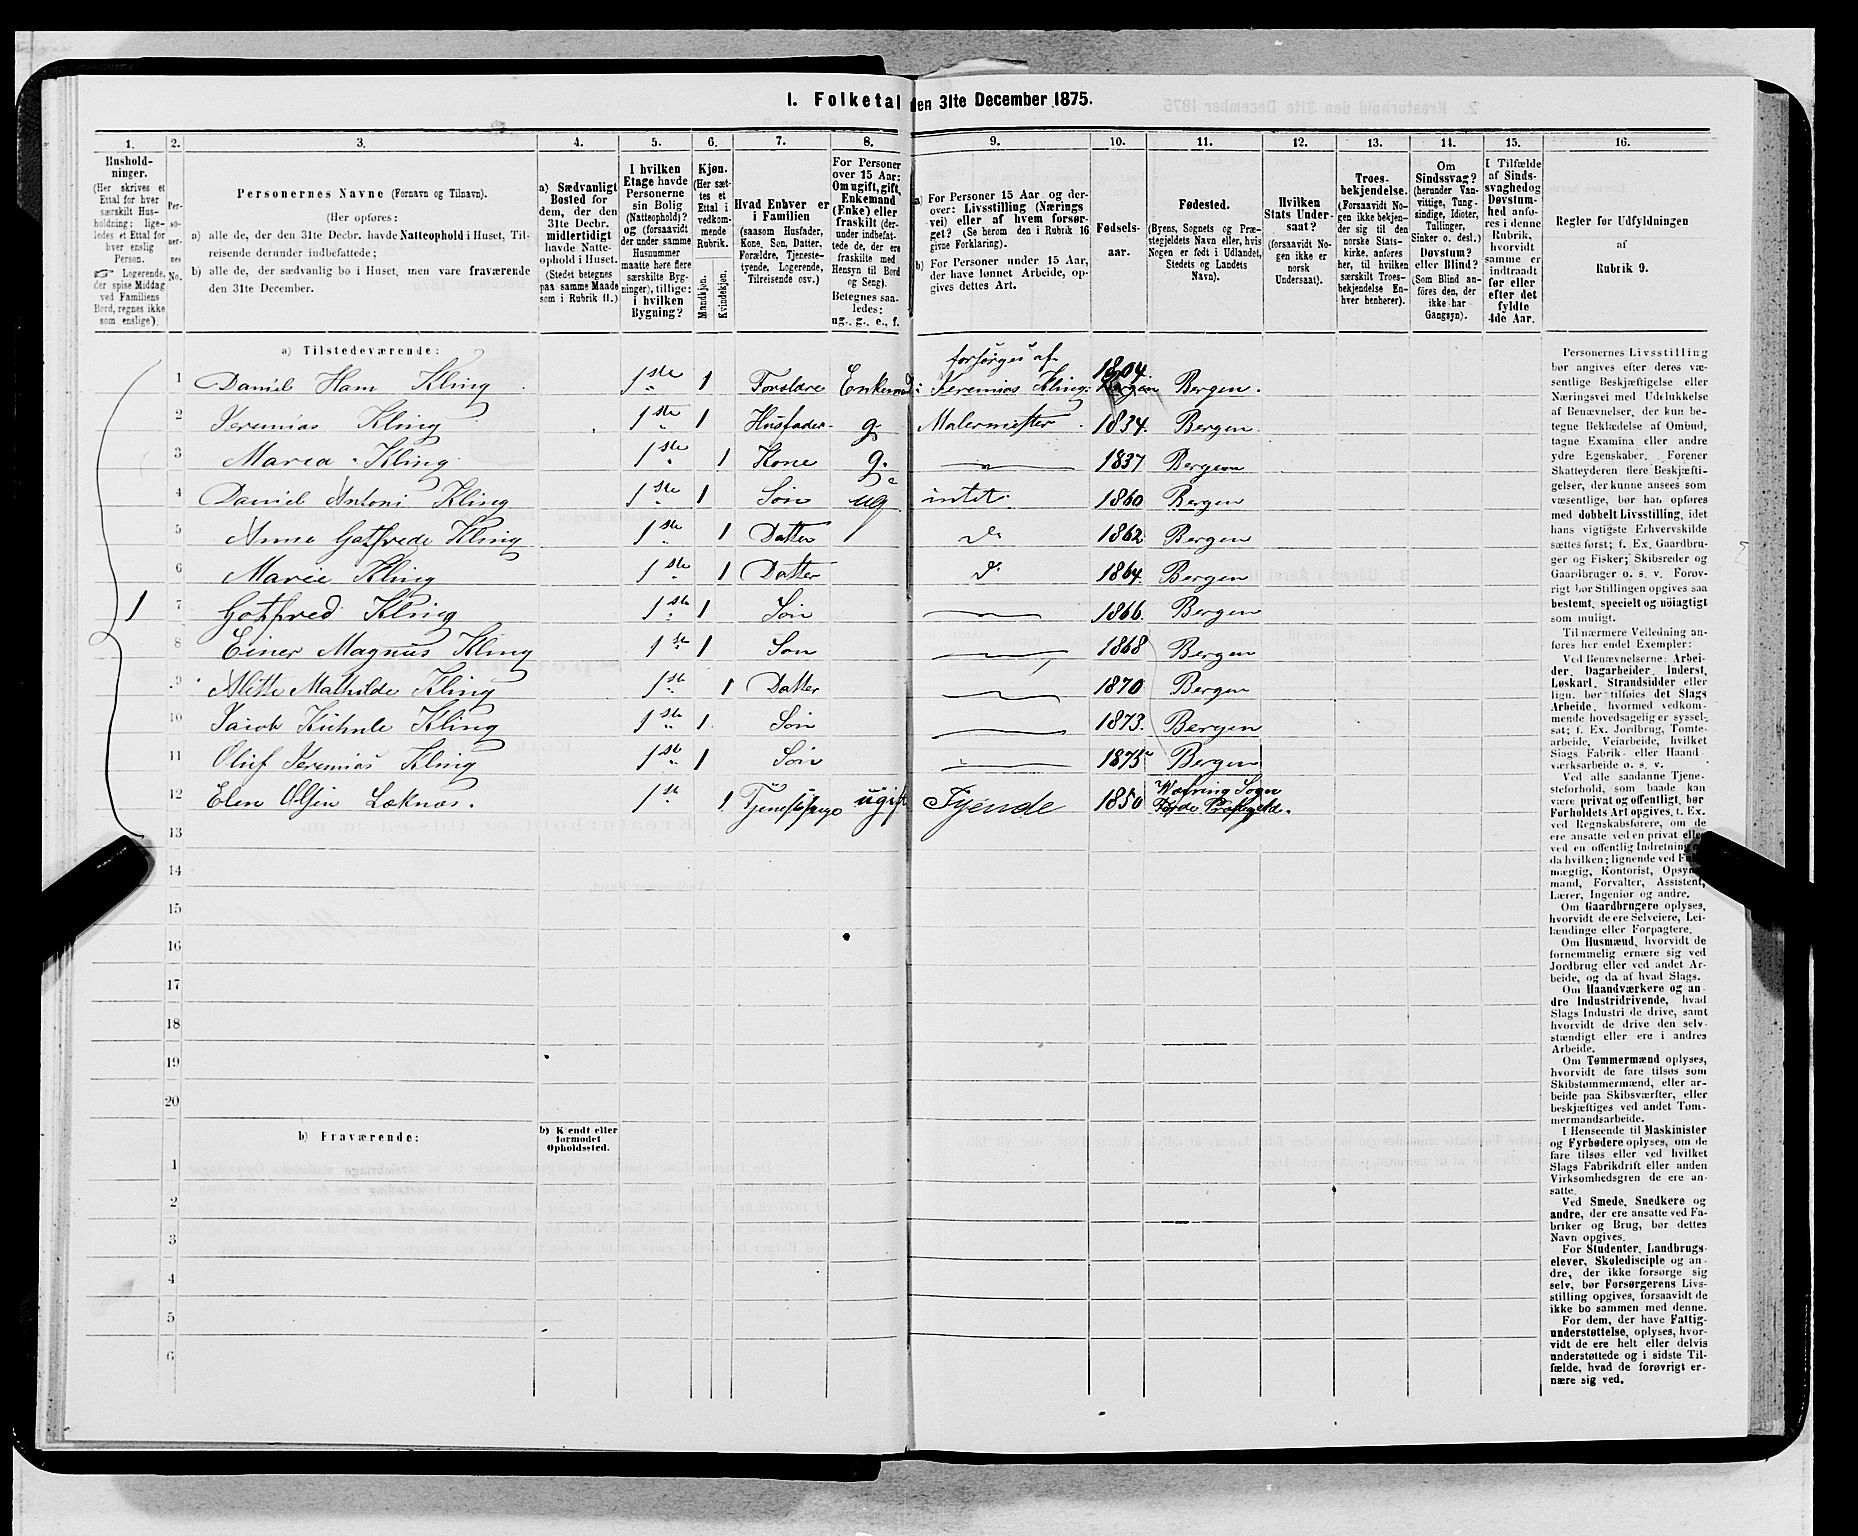 1. Folketal den 31te December 1875.
1. 2. 3. 4. 5. 6. 7. 8. 9. 10. 11. 12. 13. 14. 15. 16.
Hushold-
ninger.
(Her skrives et
Ettal for hver
særskilt Hus-
holdning; lige-
ledes et Ettal for
hver enslig
Person.
☞ Logerende,
der spise Middag
ved Familiens
Bord, regnes ikke
som enslige).
Per-
so-
ner-
nes
No.
Personernes Navne (Fornavn og Tilnavn).
(Her opføres:
a) alle de, der den 31te Decbr. havde Natteophold i Huset, Til-
reisende derunder indbefattede;
b) alle de, der sædvanlig bo i Huset, men vare fraværende
den 31te December.
a) Sædvanligt
Bosted for
dem, der den
31te Decbr.
midlertidigt
havde Natte-
ophold i Huset.
(Stedet betegnes
paa samme Maade
som i Rubrik 11.)
I hvilken
Etage havde
Personerne
sin Bolig
(Natteophold)?
og (forsaavidt
der under samme
Husnummer
maatte høre flere
særskilte Byg-
ninger), tillige:
i hvilken
Bygning?
Kjøn.
(Her sæt-
tes et
Ettal i
vedkom-
mende
Rubrik.
Mandkjøn.
Kvindekjøn.
Hvad Enhver er
i Familien
(saasom Husfader,
Kone, Søn, Datter,
Forældre, Tjeneste-
tyende, Logerende,
Tilreisende osv.)
For Personer
over 15 Aar:
Om ugift, gift,
Enkemand
(Enke) eller
fraskilt (der-
under indbefat-
tede de, der ere
fraskilte med
Hensyn til Bord
og Seng).
Betegnes saa-
ledes:
ug., g., e., f.
a) For Personer 15 Aar og der-
over: Livsstilling (Nærings
vei) eller af hvem forsør-
get? (Se herom den i Rubrik 16
givne Forklaring).
b) For Personer under 15 Aar,
der have lønnet Arbeide, op-
gives dettes Art.
Fødsels-
aar.
Fødested.
(Byens, Sognets og Præ-
stegjeldets Navn eller, hvis
Nogen er født i Udlandet,
Stedets og Landets
Navn).
Hvilken
Stats Under-
saat?
(forsaavidt No-
gen ikke er
norsk
Undersaat).
Troes-
bekjendelse.
(Forsaavidt No-
gen ikke bekjen-
der sig til den
norske Stats-
kirke, anføres
her, til hvilken
særskilt Troes-
bekjendelse En-
hver henhører).
Om
Sindssvag?
(herunder Van-
vittige, Tung-
sindige, Idioter,
Tullinger,
Sinker o. desl.)
Døvstum?
eller Blind?
(Som Blind an-
føres den, der
ikke har
Gangsyn).
I Tilfælde
af Sinds-
svaghed og
Døvstum-
hed anfø-
res i denne
Rubrik,
hvorvidt
samme er
indtraadt
før eller
efter det
fyldte
4de Aar.
Regler for Udfyldningen
af
Rubrik 9.
a) Tilstedeværende:
forsørges af
1 Daniel Ham Kling 1ste 1 Forældre Enkemand Jeremias Kling 1804 Bergen.
2 Jeremias Kling 1ste 1 Husfader g Malermester 1834. Bergen
3 Maria Kling 1ste 1 Kone g. 1837 Bergen
4 Daniel Antoni Kling 1ste 1 Søn ug intet. 1860 Bergen
5 Anna Gotfrede Kling 1ste 1 Datter Do 1862 Bergen
6 Marie Kling 1ste 1 Datter Do 1864. Bergen
1 7 Gotfred Kling 1ste 1 Søn 1866. Bergen
8 Einer Magnus Kling 1ste 1 Søn 1868 Bergen
9 Alette Mathilde Kling 1ste 1 Datter 1870 Bergen
10 Jacob Kühnle Kling 1ste 1 Søn 1873. Bergen
11 Oluf Jeremias Kling 1ste 1 Søn 1875 Bergen
12 Elen Olsen 1ste 1 Tjenestepige ugift Tyende 1850 Sogn
Førde
13
14
15
16
17
18
19
20
b) Fraværende:
b) Kjendt eller
formodet
Opholdssted.
1
2
3
4
5
6
Personernes Livsstilling
bør angives efter deres væ-
sentlige Beskjæftigelse eller
Næringsvei med Udelukkelse
af Benævnelser, der kun be-
tegne Beklædelse af Ombud,
tagne Examina eller andre
ydre Egenskaber. Forener
Skatteyderen flere Beskjæfti-
gelser, der kunne ansees som
væsentlige, bør han opføres
med dobbelt Livsstilling, idet
hans vigtigste Erhvervskilde
sættes først; f. Ex. Gaardbru-
ger og Fisker; Skibsreder og
Gaardbruger o. s. v. Forøv-
rigt bør Stillingen opgives saa
bestemt, specielt og nøiagtigt
som muligt.
Til nærmere Veiledning an-
føres her endel Exempler:
Ved Benævnelserne: Arbei-
der, Dagarbeider, Inderst,
Løskarl, Strandsidder eller
lign. bør tilføies det Slags
Arbeide, hvormed vedkom-
mende hovedsagelig er syssel-
sat; f. Ex. Jordbrug, Tomte-
arbeide, Veiarbeide, hvilket
Slags Fabrik- eller Haand-
værksarbeide o. s. v.
Ved alle saadanne Tjene-
steforhold, som baade kan
være privat og offentligt, bør
Forholdets Art opgives, t. Ex.
ved Regnskabsførere, om de
ere ansatte ved en privat eller
ved en offentlig Indretning
da hvilken; lignende ved Fuld-
mægtig, Kontorist, Opsyns-
mand, Forvalter, Assistent,
Lærer, Ingeniør og andre.
Om Gaardbrugere oplyses,
hvorvidt de ere Selveiere, Lei-
lændinge eller Forpagtere.
Om Husmænd, hvorvidt de
fornemmelig ernære sig ved
Jordbrug eller ved andet Ar-
beide, og da af hvad Slags.
Om Haandværkere og an-
dre Industridrivende, hvad
Slags Industri de drive, samt
hvorvidt de drive den selv-
stændigt eller ere i andres
Arbeide.
Om Tømmermænd oplyses,
hvorvidt de fare tilsøs som
Skibstømmermænd, eller ar-
beide paa Skibsværfter, eller
beskjæftiges ved andet Tøm-
mermandsarbeide.
I Henseende til Maskinister
og Fyrbødere oplyses, om de
fare tilsøs eller ved hvilket
Slags Fabrikdrift eller anden
Virksomhedsgren de ere an-
satte.
Ved Smede, Snedkere og
andre, der ere ansatte ved Fa-
briker og Brug, bør dettes
Navn opgives.
For Studenter, Landbrugs-
elever, Skoledisciple og an-
dre, der ikke forsørge sig
selv, bør Forsørgerens Livs-
stilling opgives, forsaavidt de
ikke bo sammen med denne.
For dem, der have Fattig-
understøttelse, oplyses, hvor-
vidt de ere helt eller delvis
understøttede og i sidste Til-
fælde, hvad de forøvrigt er-
nære sig ved.